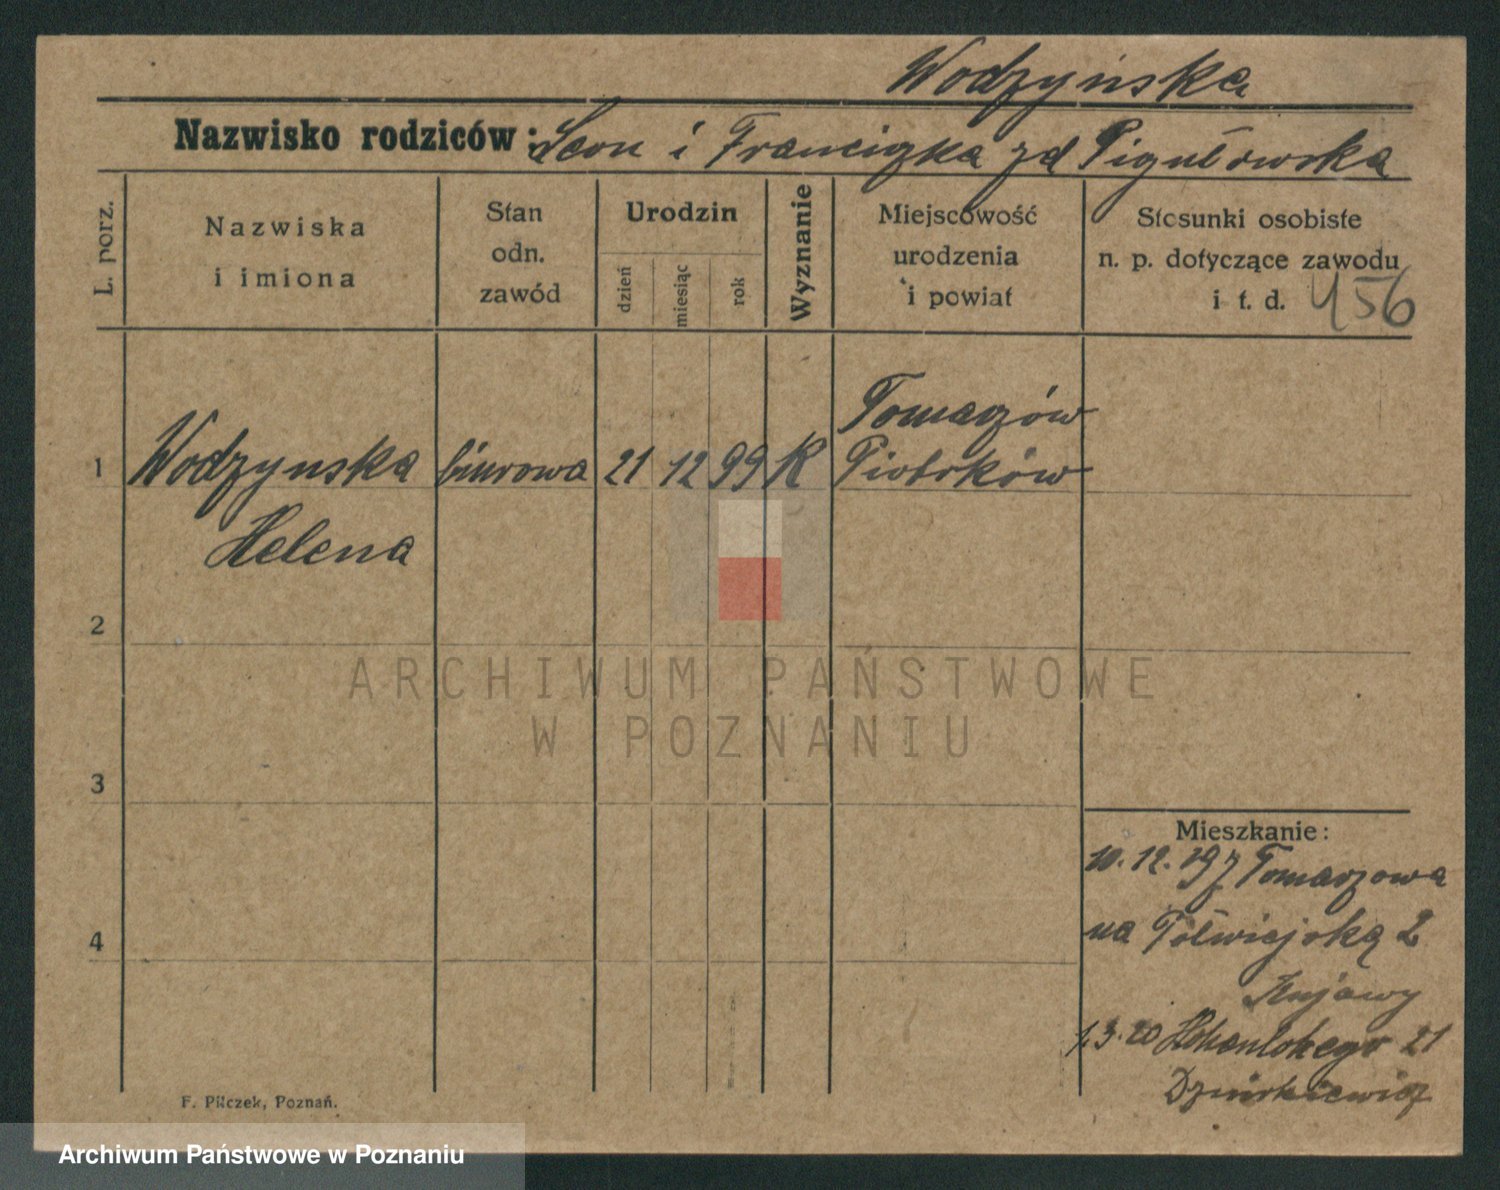 Wodzyńska
Nazwisko rodziców: Leon i Franciszka zd Pigułowska
L. porz.
Nazwiska
i imiona
Stan
odn.
zawód
Urodzin
dzień
miesiąc
rok
Wyznanie
Miejscowość
urodzenia
i powiat
Stosunki osobiste
n. p. dotyczące zawodu
i t. d. 456
1 Wodzynska biurowa 21 12 99 K Tomaszów
Piotrków
Helena
2
ARCHIWUM PAŃSTWOWE
W POZNANIU
3
Mieszkanie:
10.12.19 z Tomaszowa
4
na Półwiejską 2
Kujawy
1.3.20 21
F. Pilczek, Poznań.
Archiwum Państwowe w Poznaniu